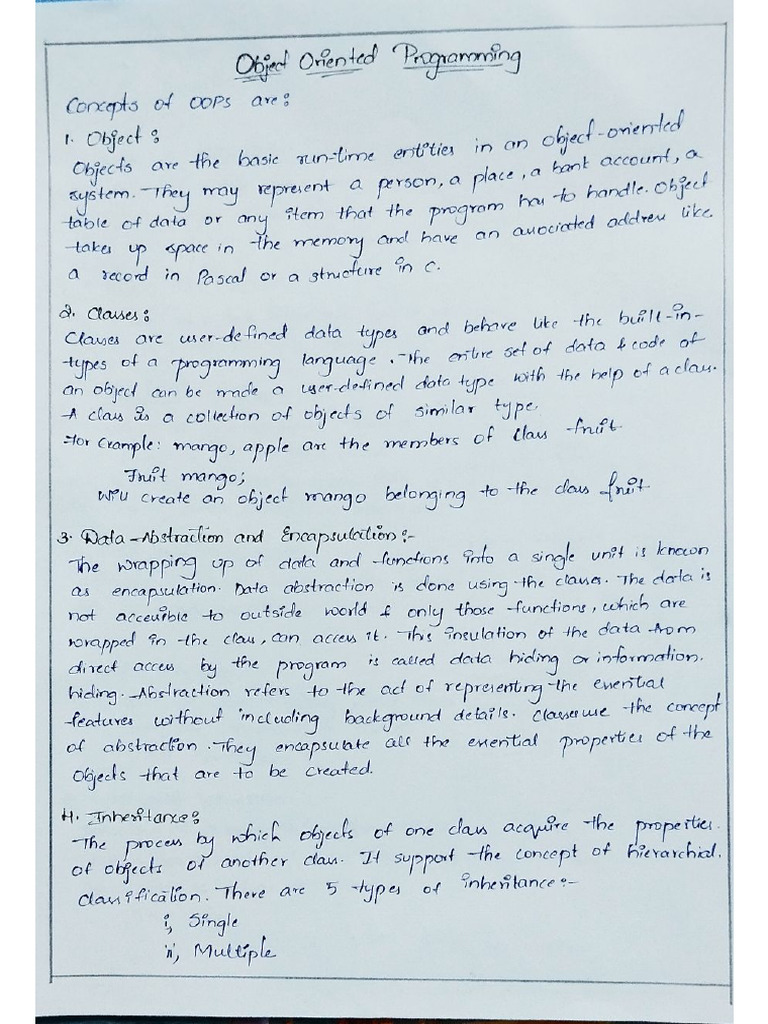 Object Oriented Programming
Concepts of OOPs are:
1. Object:
Objects are the basic run-time entities in an object-oriented
system. They may represent a person, a place, a bank account, a
table of data or any item that the program has to handle. Object
takes up space in the memory and have an associated address like
a record in Pascal or a structure in C.
2. Classes:
Classes are user-defined data types and behave like the built-in-
types of a programming language. The entire set of data & code of
an object can be made a user-defined data type with the help of a class.
A class is a collection of objects of similar type.
For Example: mango, apple are the members of class fruit
Fruit mango;
Will create an object mango belonging to the class fruit
3. Data Abstraction and Encapsulation:-
The wrapping up of data and functions into a single unit is known
as encapsulation. Data abstraction is done using the classes. The data is
not accessible to outside world & only those functions, which are
wrapped in the class, can access it. This insulation of the data from
direct access by the program is called data hiding or information.
hiding. Abstraction refers to the act of representing the essential
features without including background details. Classes use the concept
of abstraction. They encapsulate all the essential properties of the
Objects that are to be created.
4. Inheritance:
The process by which objects of one class acquire the properties.
of objects of another class. It support the concept of hierarchial.
classification. There are 5 types of inheritance:-
i, Single
ii, Multiple